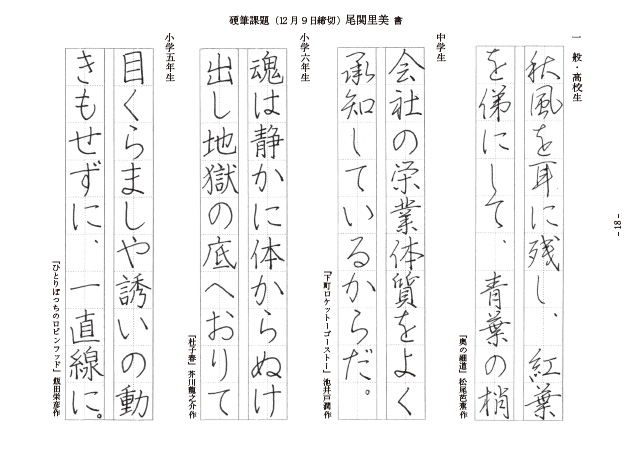 硬筆課題（12月9日締切）尾関里美 書
一般・高校生
秋風を耳に残し、紅葉
を俤にして、青葉の梢
『奥の細道』松尾芭蕉作
中学生
会社の栄業体質をよく
承知しているからだ。
『下町ロケットーゴーストー』池井戸潤作
小学六年生
魂は静かに体からぬけ
出し地獄の底へおりて
『杜子春』芥川龍之介作
小学五年生
目くらましや誘いの動
きもせずに、一直線に。
『ひとりぼっちのロビンフッド』飯田栄彦作
- 18 -